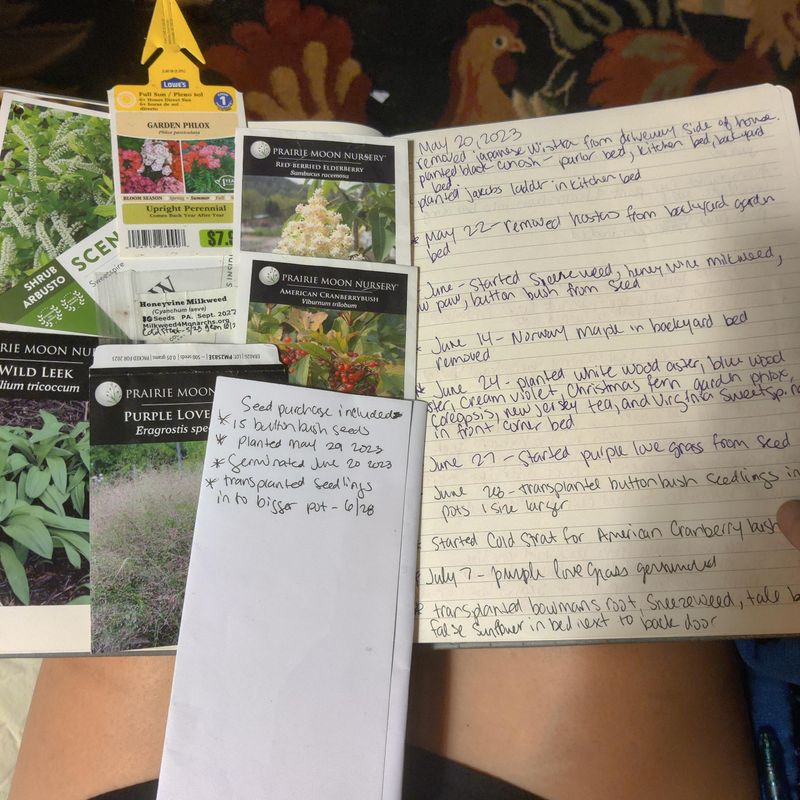 Lowe's
Full Sun / Pleno sol
6+ Hours Direct Sun
6+ horas de sol
directo
1
GARDEN PHLOX
Phlox paniculata
BLOOM SEASON Spring - Summer Fall
Upright Perennial
Comes Back Year After Year
$7.9
SHRUB
ARBUSTO
SCEN
Sweetspire
PRAIRIE MOON NURSERY
RED-BERRIED ELDERBERRY
Sambucus racemosa
PRAIRIE MOON NURSERY
AMERICAN CRANBERRYBUSH
Viburnum trilobum
Honeyvine Milkweed
(Cynanchum laeve)
10 Seeds PA. Sept. 2022
Milkweed4Monarchs.org
PRAIRIE MOON NUR
WILD LEEK
lium tricoccum
500 seeds | 0.05 grams | PACKED FOR 2023
PRAIRIE MOON
PURPLE LOVE
Eragrostis spe
Seed purchase included
* 15 button bush seeds
* planted May 29 2023
* Germinated June 20 2023
* transplanted seedlings
in to bigger pot - 6/28
May 20, 2023
removed japanese wistra from driveway side of house.
planted black cohosh - parlor bed, kitchen bed, backyard
bed
planted jacobs ladder in kitchen bed
* May 22 - removed hostas from backyard garden
bed
June - started sneezeweed, honey vine milkweed,
paw paw, button bush from seed
* June 14 - Norway maple in backyard bed
removed
* June 24 - planted white wood aster, blue wood
ster, cream violet, Christmas fern, garden phlox,
coreopsis, new jersey tea, and Virginia Sweetspire
in front corner bed
June 27 - Started purple love grass from seed
June 28 - transplanted button bush seedlings in
pots 1 size larger
* Started Cold strat for American Cranberry bush
* July 7 - purple love grass germinated
* transplanted bowmans root, Sneezeweed, tall b
false sunflower in bed next to back door